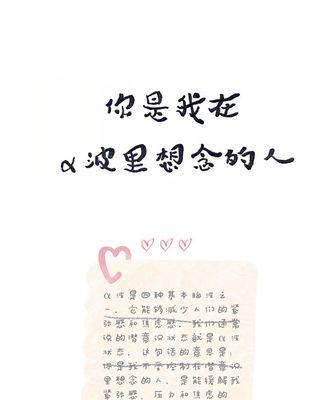 你是我在
α波里想念的人
α波是四种基本脑波之
一，它能够减少人们的紧
张感和焦虑感，我们通常
说的潜意识状态就是α波
状态，这句话的意思是：
你是我不受控制在潜意识
里想念的人，是能缓解我
紧张感、压力和焦虑感